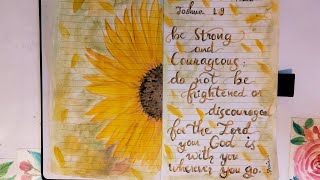 Joshua 1:9
be Strong
and
Courageous;
do not be
frightened or
discouraged
for the Lord
your God is
with you
wherever you go.